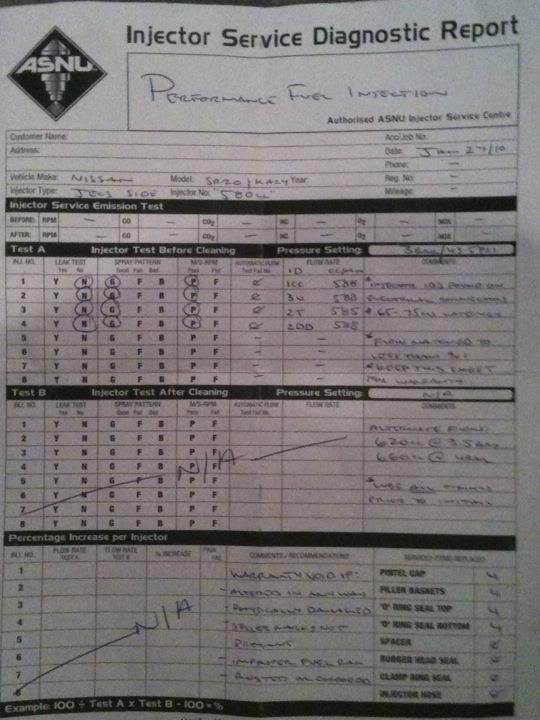 ASNU
Injector Service Diagnostic Report
PERFORMANCE FUEL INJECTION
Authorised ASNU Injector Service Centre
Customer Name:
Acc/Job No:
Address:
Date: JAN 27/10
Phone: —
Vehicle Make: NISSAN Model: SR20/KA24 Year:
Reg. No: —
Injector Type: JECS SIDE Injector No: 580cc
Mileage: —
Injector Service Emission Test
BEFORE: RPM — CO — CO2 — HC — O2 — NOX —
AFTER: RPM — CO — CO2 — HC — O2 — NOX —
Test A Injector Test Before Cleaning Pressure Setting: 3BAR/43.5PSI
INJ. NO. LEAK TEST SPRAY PATTERN M/S-RPM AUTOMATIC FLOW FLOW RATE COMMENTS
Yes No Good Fair Bad Pass Fail Test Fail No. ID cc/min
1 Y N G F B P F 1CC 588
2 Y N G F B P F 3U 588 ELECTRICAL CONNECTORS
3 Y N G F B P F 2T 585
4 Y N G F B P F 2DD 588
5 Y N G F B P F — — * FLOW MATCHED TO
6 Y N G F B P F — — LESS THAN 1%
7 Y N G F B P F — — * KEEP THIS SHEET
8 Y N G F B P F — — FOR WARRANTY
Test B Injector Test After Cleaning Pressure Setting: N/A
INJ. NO. LEAK TEST SPRAY PATTERN M/S-RPM AUTOMATIC FLOW FLOW RATE COMMENTS
Yes No Good Fair Bad Pass Fail Test Fail No.
1 Y N G F B P F ALTERNATE FLOW:
2 Y N G F B P F 620cc @ 3.5BAR
3 Y N G F B P F 660cc @ 4BAR
4 Y N G F B P F N/A
5 Y N G F B P F
6 Y N G F B P F PRIOR TO INSTALL
7 Y N G F B P F
8 Y N G F B P F
Percentage Increase per Injector
INJ. NO. FLOW RATE TEST A FLOW RATE TEST B % INCREASE PASS FAIL COMMENTS / RECOMMENDATIONS SERVICED ITEMS REPLACED
1 WARRANTY VOID IF: PINTEL CAP 4
2 - ALTERED IN ANY WAY FILLER BASKETS 4
3 - PHYSICALLY DAMAGED 'O' RING SEAL TOP 4
4 N/A - SELLER MARKS NOT 'O' RING SEAL BOTTOM 4
5 PRESENT SPACER
6 - IMPROPER FUEL RAN RUBBER HEAD SEAL
7 - RUSTED OR CORRODED CLAMP RING SEAL
8 INJECTOR HOSE
Example: 100 ÷ Test A x Test B - 100 = %